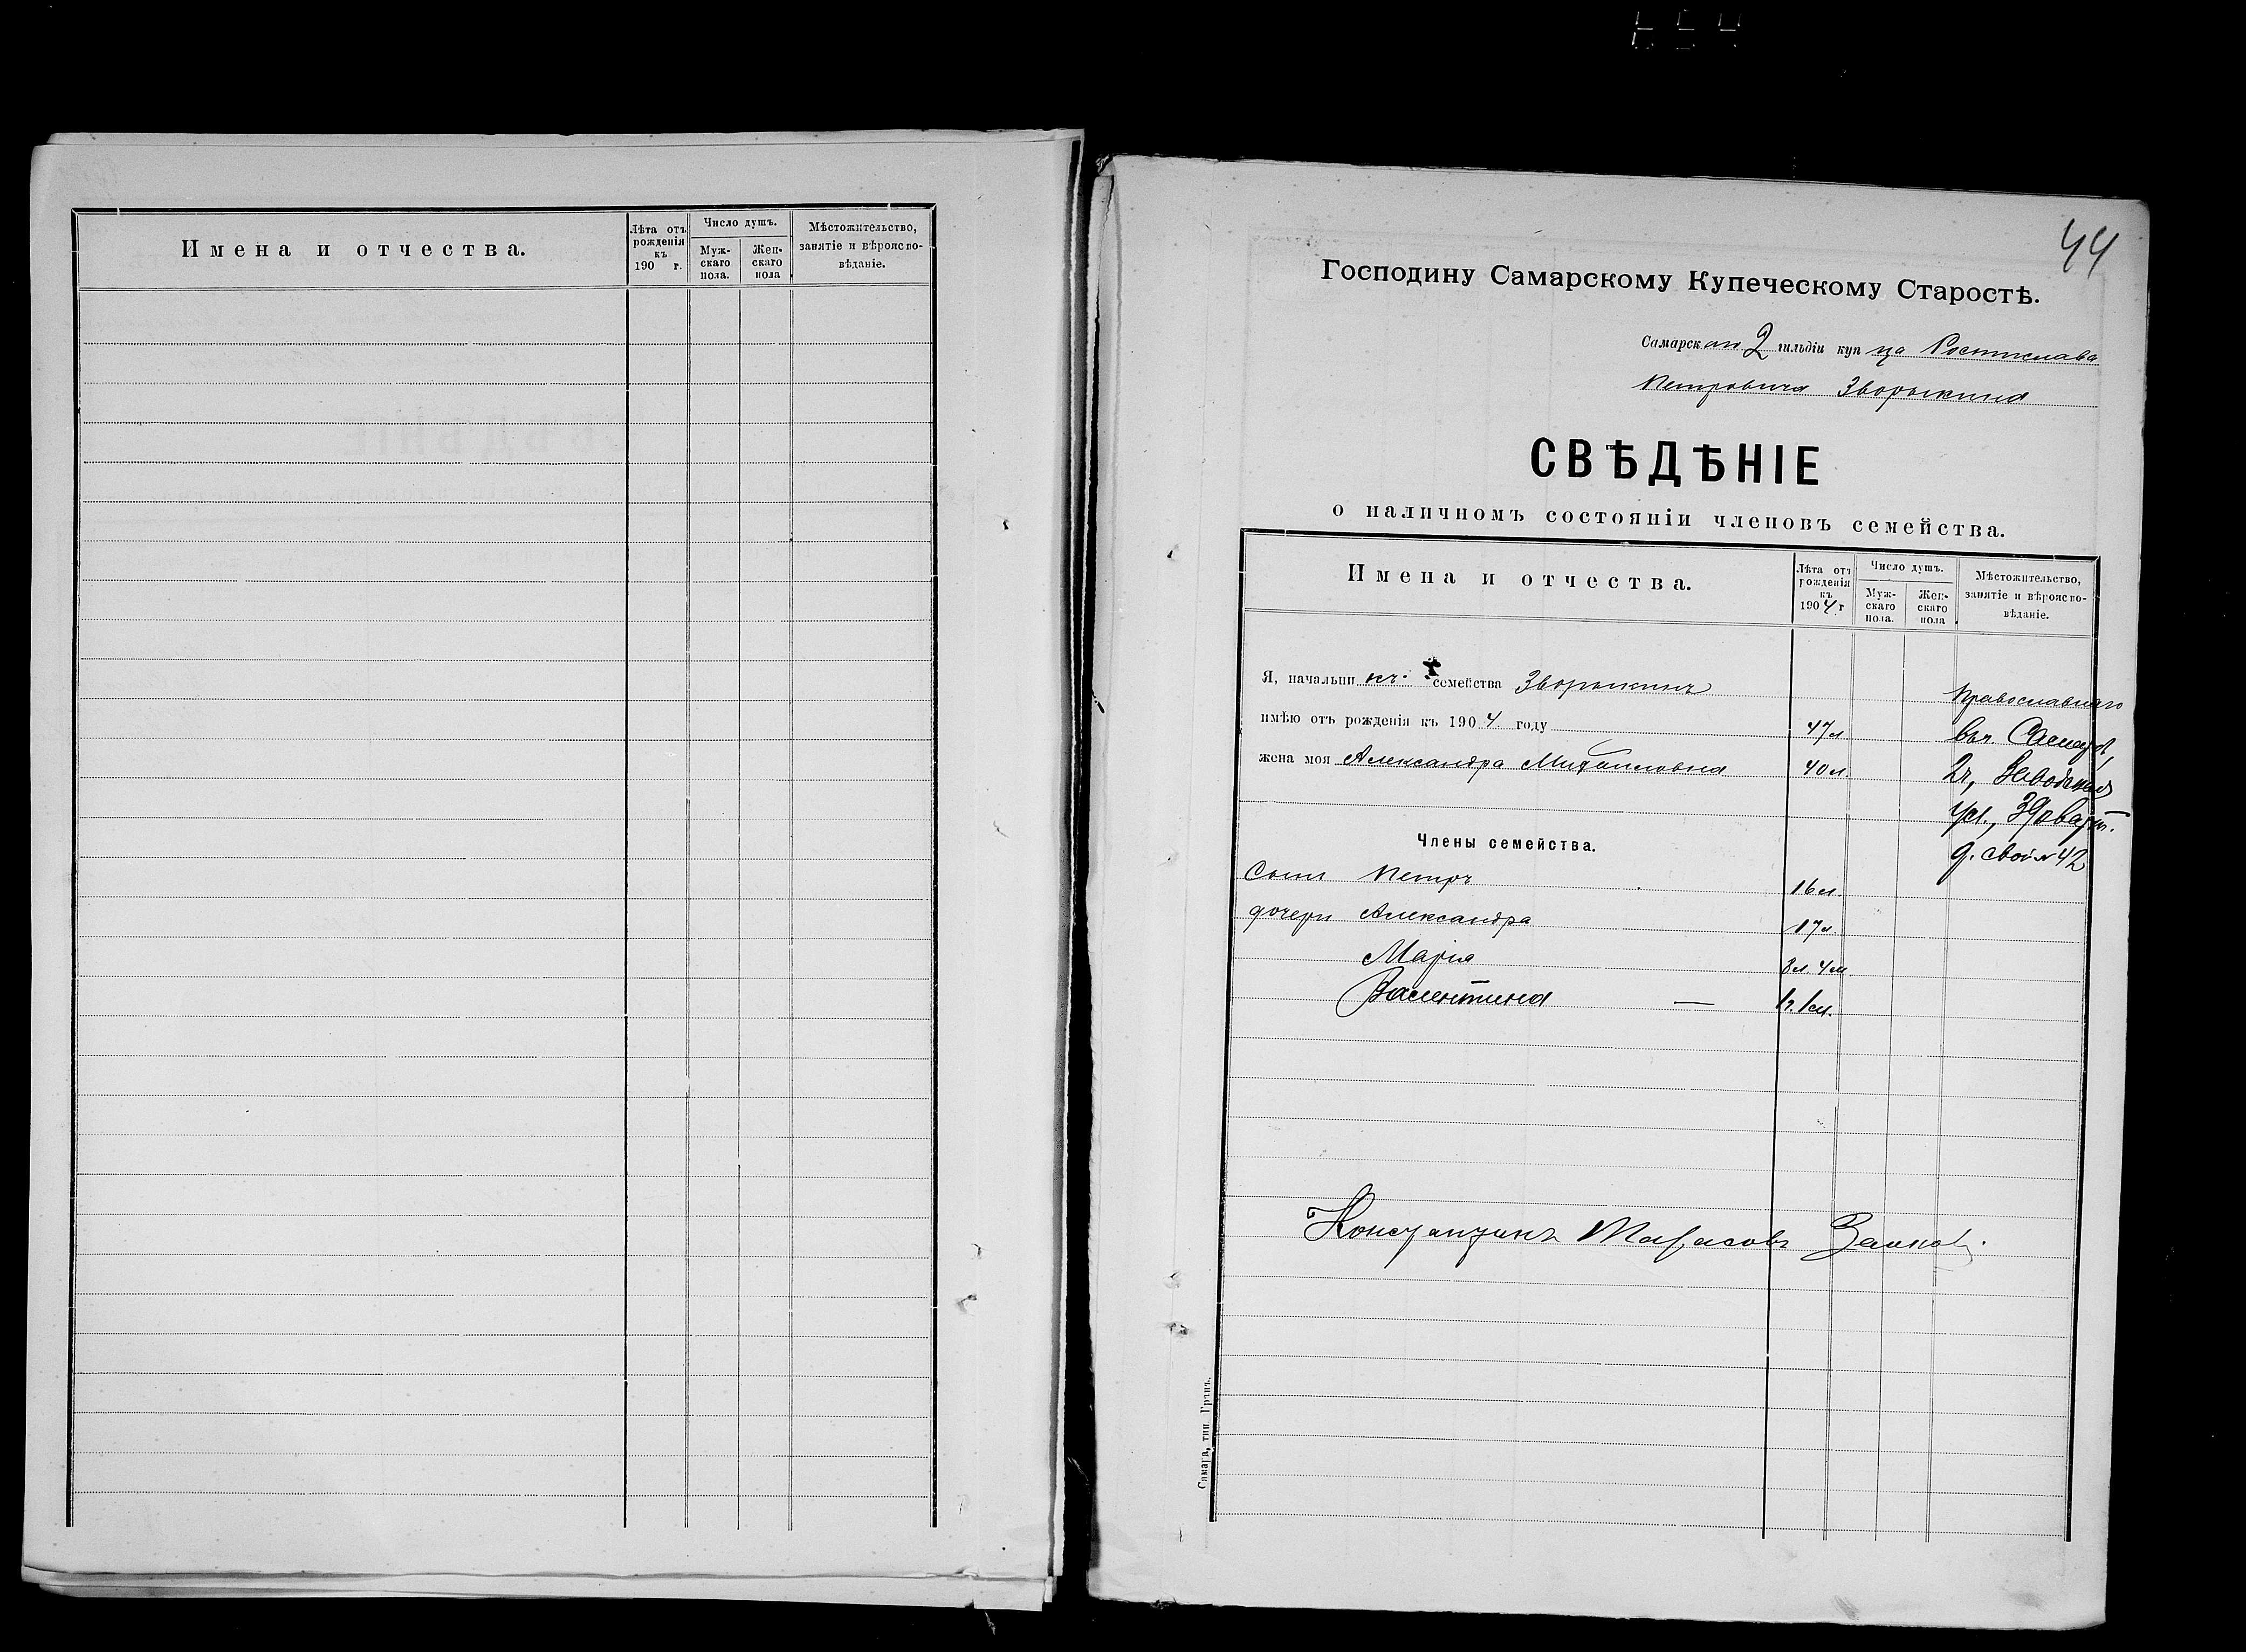 Имена и отчества.
Лѣта отъ рожденія къ 190 г.
Число душъ.
Мужскаго пола.
Женскаго пола
Мѣстожительство, занятіе и вѣроисповѣданіе.
44
Господину Самарскому Купеческому Старостѣ.
Самарскаго 2 гильдіи купца Ростислава
Петровича Зворыкина
СВѢДѢНІЕ
о наличномъ состояніи членовъ семейства.
Имена и отчества.
Лѣта отъ рожденія къ 1904 г
Число душъ.
Мужскаго пола.
Женскаго пола
Мѣстожительство, занятіе и вѣроисповѣданіе.
Я, начальникъ семейства Зворыкинъ Православнаго
имѣю отъ рожденія къ 1904 году 47 л
жена моя Александра Михайловна 40 л. 2 ч,
ул.,
Члены семейства.
д. свой № 42
Сынъ Петръ 16 л.
дочери Александра 17 л.
Марія 8 л. 4 м.
Валентина — 1 г. 1 м.
Константинъ Тарасовъ
Самара, тип. Гранъ.